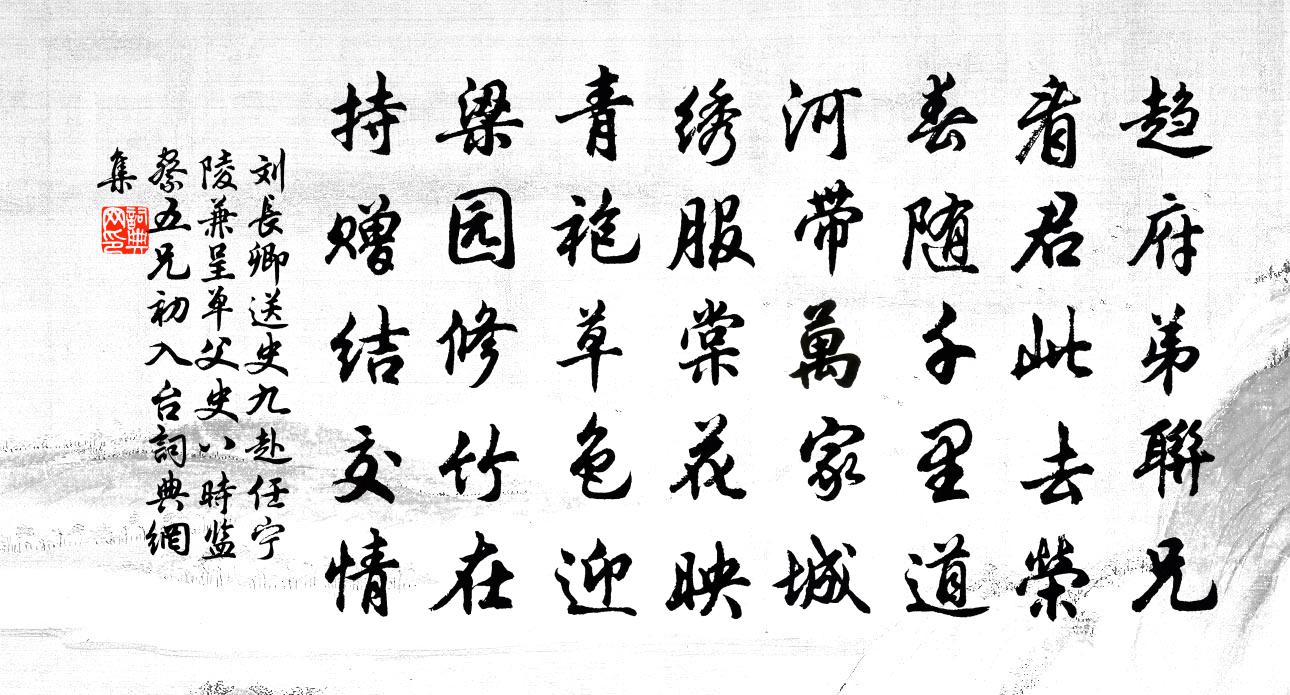 趋府弟聯兄
看君此去榮
春随千里道
河带萬家城
绣服棠花映
青袍草色迎
梁园修竹在
持赠结交情
刘長卿送史九赴任宁
陵兼呈单父史八時监
察五兄初入台詞典網
集
詞典网印